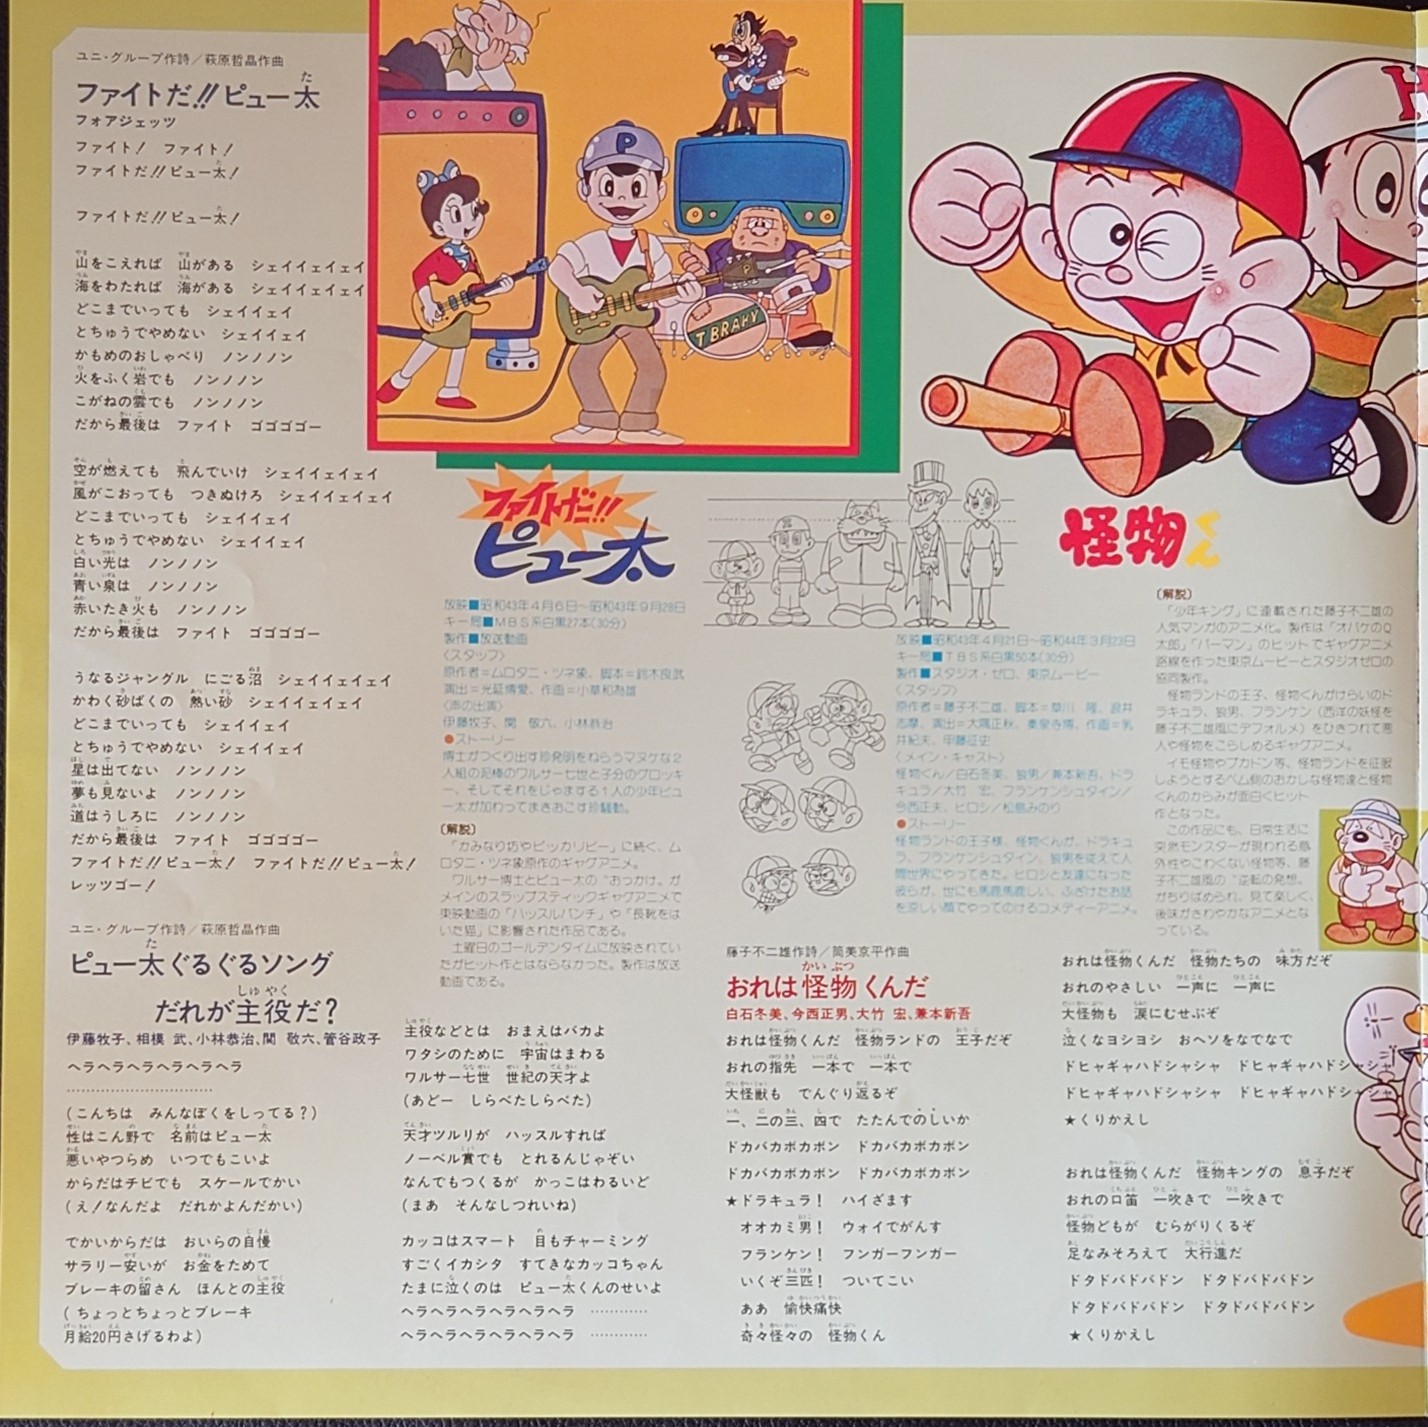 ユニ・グループ作詩／萩原哲晶作曲
ファイトだ!!ピュー太
フォアジェッツ
ファイト!　ファイト!
ファイトだ!!ピュー太!
ファイトだ!!ピュー太!
山をこえれば　山がある　シェイイェイェイ
海をわたれば　海がある　シェイイェイェイ
どこまでいっても　シェイイェイ
とちゅうでやめない　シェイイェイ
かもめのおしゃべり　ノンノノン
火をふく岩でも　ノンノノン
こがねの雲でも　ノンノノン
だから最後は　ファイト　ゴゴゴゴー
空が燃えても　飛んでいけ　シェイイェイェイ
風がこおっても　つきぬけろ　シェイイェイェイ
どこまでいっても　シェイイェイ
とちゅうでやめない　シェイイェイ
白い光は　ノンノノン
青い泉は　ノンノノン
赤いたき火も　ノンノノン
だから最後は　ファイト　ゴゴゴゴー
うなるジャングル　にごる沼　シェイイェイェイ
かわく砂ばくの　熱い砂　シェイイェイェイ
どこまでいっても　シェイイェイ
とちゅうでやめない　シェイイェイ
星は出てない　ノンノノン
夢も見ないよ　ノンノノン
道はうしろに　ノンノノン
だから最後は　ファイト　ゴゴゴゴー
ファイトだ!!ピュー太!　ファイトだ!!ピュー太!
レッツゴー!
P
P
T BRAHY
ファイトだ!!
ピュー太
放映■昭和43年4月6日〜昭和43年9月28日
キー局■MBS系白黒27本(30分)
製作■放送動画
〈スタッフ〉
原作者＝ムロタニ・ツネ象、脚本＝鈴木良武
演出＝光延博愛、作画＝小草和為雄
〈声の出演〉
伊藤牧子、関　敬六、小林恭治
●ストーリー
博士がつくり出す珍発明をねらうマヌケな2
人組の泥棒のワルサー七世と子分のブロッキ
ー、そしてそれをじゃまする1人の少年ピュ
ー太が加わってまきおこす珍騒動。
〔解説〕
「かみなり坊やピッカリビー」に続く、ム
ロタニ・ツネ象原作のギャグアニメ。
ワルサー博士とピュー太の〝おっかけ〟が
メインのスラップスティックギャグアニメで
東映動画の「ハッスルパンチ」や「長靴をは
いた猫」に影響された作品である。
土曜日のゴールデンタイムに放映されてい
たがヒット作とはならなかった。製作は放送
動画である。
ユニ・グループ作詩／萩原哲晶作曲
ピュー太ぐるぐるソング
だれが主役だ?
伊藤牧子、相模 武、小林恭治、関 敬六、菅谷政子
ヘラヘラヘラヘラヘラヘラ
…………………………
(こんちは　みんなぼくをしってる?)
性はこん野で　名前はピュー太
悪いやつらめ　いつでもこいよ
からだはチビでも　スケールでかい
(え!なんだよ　だれかよんだかい)
でかいからだは　おいらの自慢
サラリー安いが　お金をためて
ブレーキの留さん　ほんとの主役
(ちょっとちょっとブレーキ
月給20円さげるわよ)
主役などとは　おまえはバカよ
ワタシのために　宇宙はまわる
ワルサー七世　世紀の天才よ
(あどー　しらべたしらべた)
天才ツルリが　ハッスルすれば
ノーベル賞でも　とれるんじゃぞい
なんでもつくるが　かっこはわるいど
(まあ　そんなしつれいね)
カッコはスマート　目もチャーミング
すごくイカシタ　すてきなカッコちゃん
たまに泣くのは　ピュー太くんのせいよ
ヘラヘラヘラヘラヘラヘラ　…………
ヘラヘラヘラヘラヘラヘラ　…………
怪物くん
放映■昭和43年4月21日〜昭和44年3月23日
キー局■TBS系白黒50本(30分)
製作■スタジオ・ゼロ、東京ムービー
〈スタッフ〉
原作者＝藤子不二雄、脚本＝草川　隆、浪井
志摩、演出＝大隅正秋、秦泉寺博、作画＝乳
井紀夫、甲藤征史
〈メイン・キャスト〉
怪物くん／白石冬美、狼男／兼本新吾、ドラ
キュラ／大竹　宏、フランケンシュタイン／
今西正夫、ヒロシ／松島みのり
●ストーリー
怪物ランドの王子様、怪物くんが、ドラキュ
ラ、フランケンシュタイン、狼男を従えて人
間世界にやってきた。ヒロシと友達になった
彼らが、世にも馬鹿馬鹿しい、ふざけたお話
を涼しい顔でやってのけるコメディーアニメ。
〔解説〕
「少年キング」に連載された藤子不二雄の
人気マンガのアニメ化。製作は「オバケのQ
太郎」「パーマン」のヒットでギャグアニメ
路線を作った東京ムービーとスタジオゼロの
協同製作。
怪物ランドの王子、怪物くんがけらいのド
ラキュラ、狼男、フランケン（西洋の妖怪を
藤子不二雄風にデフォルメ）をひきつれて悪
人や怪物をこらしめるギャグアニメ。
イモ怪物やプカドン等、怪物ランドを征服
しようとするベム側のおかしな怪物達と怪物
くんのからみが面白くヒット
作となった。
この作品にも、日常生活に
突然モンスターが現われる意
外性やこわくない怪物等、藤
子不二雄風の〝逆転の発想〟
がちりばめられ、見て楽しく、
後味がさわやかなアニメとな
っている。
藤子不二雄作詩／筒美京平作曲
おれは怪物くんだ
白石冬美、今西正男、大竹 宏、兼本新吾
おれは怪物くんだ　怪物ランドの　王子だぞ
おれの指先　一本で　一本で
大怪獣も　でんぐり返るぞ
一、二の三、四で　たたんでのしいか
ドカバカボカボン　ドカバカボカボン
ドカバカボカボン　ドカバカボカボン
★ドラキュラ!　ハイざます
オオカミ男!　ウォイでがんす
フランケン!　フンガーフンガー
いくぞ三匹!　ついてこい
ああ　愉快痛快
奇々怪々の　怪物くん
おれは怪物くんだ　怪物たちの　味方だぞ
おれのやさしい　一声に　一声に
大怪物も　涙にむせぶぞ
泣くなヨシヨシ　おヘソをなでなで
ドヒャギャハドシャシャ　ドヒャギャハドシャシャ
ドヒャギャハドシャシャ　ドヒャギャハドシャシャ
★くりかえし
おれは怪物くんだ　怪物キングの　息子だぞ
おれの口笛　一吹きで　一吹きで
怪物どもが　むらがりくるぞ
足なみそろえて　大行進だ
ドタドバドバドン　ドタドバドバドン
ドタドバドバドン　ドタドバドバドン
★くりかえし